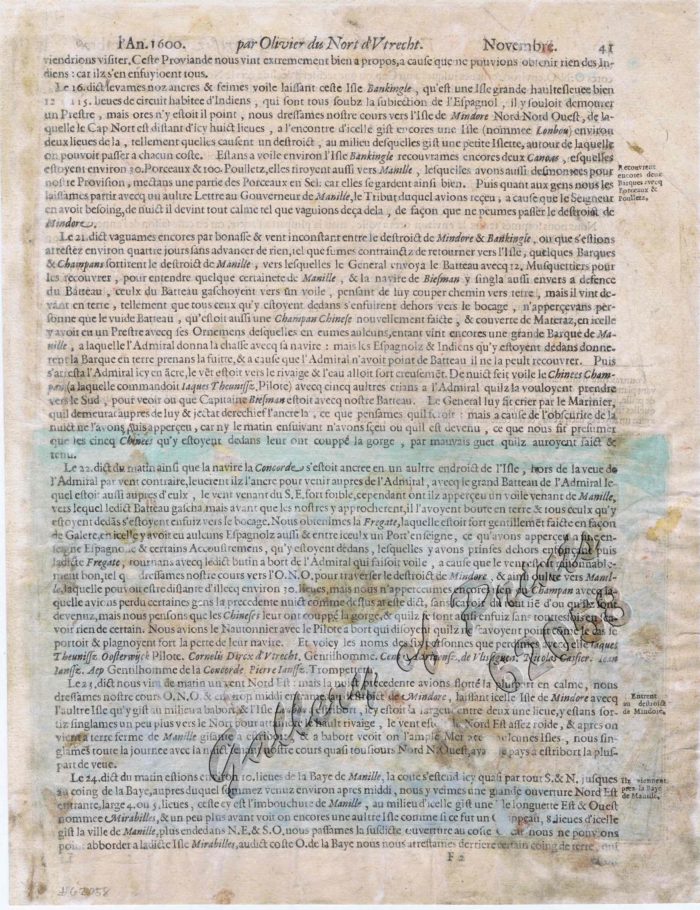 l'An. 1600. par Olivier du Nort d'Vtrecht. Novembre. 41
viendrions visiter. Ceste Proviande nous vint extremement bien a propos, a cause que ne pouvions obtenir rien des In-
diens: car ilz s'en ensuyoient tous.
Le 16. dict levames noz ancres & feimes voile laissant ceste Isle Bankingle, qu'est une Isle grande haulteslevee bien
12 a 15. lieues de circuit habitee d'Indiens, qui sont tous soubz la subiection de l'Espagnol, il y souloit demourer
un Prestre, mais ores n'y estoit il point, nous dressames nostre cours vers l'Isle de Mindore Nord Nord Ouest, de la-
quelle le Cap Nort est distant d'icy huict lieues, a l'encontre d'icelle gist encores une Isle (nommee Lonbou) environ
deux lieues de la, tellement quelles causent un destroict, au milieu desquelles gist une petite Islette, autour de laquelle
on pouvoit passer a chacun coste. Estans a voile environ l'Isle Bankingle recouvrames encores deux Canoas, esquelles
estoyent environ 30. Porceaux & 100. Poulletz, elles tiroyent aussi vers Manille, lesquelles avons aussi desmontees pour
nostre Provision, mectans une partie des Porceaux en Sel: car elles se gardent ainsi bien. Puis quant aux gens nous les
laissames partir avecq un aultre Lettre au Gouverneur de Manille, le Tribut duquel avions receu, a cause que le Seigneur
en avoit besoing, de nuict il devint tout calme tel que vaguions deça dela, de façon que ne peumes passer le destroict de
Mindore.
Recouvrent
encores deux
Barques avecq
Porceaux &
Poulletz,
Le 21. dict vaguames encores par bonasse & vent inconstant entre le destroict de Mindore & Bankingle, ou que s'estions
arrestez environ quattre jours sans advancer de rien, tel que fumes contrainctz de retourner vers l'Isle, quelques Barques
& Champans sortirent le destroict de Manille, vers lesquelles le General envoya le Batteau avecq 12. Musquettiers pour
les recouvrer, pour entendre quelque certainete de Manille, & la navire de Biesman y singla aussi envers a defence
du Batteau, ceulx du Batteau gaschoyent vers un voile, pensant de luy couper chemin vers terre, mais il vint de-
vant en terre, tellement que tous ceux qu'y estoyent dedans s'ensuirent dehors vers le bocage, n'appercevans per-
sonne que le vuide Batteau, qu'estoit aussi une Champan Chinese nouvellement faicte, & couverte de Materaz, en icelle
y avoit eu un Prestre avecq ses Ornemens desquelles en eumes aulcuns, entant vint encores une grande Barque de Ma-
nille, a laquelle l'Admiral donna la chasse avecq sa navire: mais les Espagnolz & Indiens qu'y estoyent dedans donne-
rent la Barque en terre prenans la fuitte, & a cause que l'Admiral n'avoit point de Batteau il ne la peult recouvrer. Puis
s'arresta l'Admiral icy en âcre, le vêt estoit vers le rivaige & l'eau alloit fort creusemêt. De nuict feit voile le Chinees Cham-
pan, (a laquelle commandoit Iaques Theunisse, Pilote) avecq cinq aultres crians a l'Admiral quilz la vouloyent prendre
vers le Sud, pour veoir ou que Capitaine Biesman estoit avecq nostre Batteau. Le General luy fit crier par le Marinier,
quil demeurast aupres de luy & jectat derechief l'ancre la, ce que pensames quil feroit: mais a cause de l'obscurite de la
nuict ne l'avons puis apperçeu, car ny le matin ensuivant n'avons sçeu ou quil est devenu, ce que nous fit presumer
que les cincq Chinees qu'y estoyent dedans leur ont couppé la gorge, par mauvais guet quilz auroyent faict &
tenu.
Le 22. dict du matin ainsi que la navire la Concorde s'estoit ancree en un aultre endroict de l'Isle, hors de la veue de
l'Admiral par vent contraire, leucrent ilz l'ancre pour venir aupres de l'Admiral, avecq le grand Batteau de l'Admiral le-
quel estoit aussi aupres d'eulx, le vent venant du S.E. fort foible, cependant ont ilz apperçeu un voile venant de Manille,
vers lequel ledict Batteau gascha mais avant que les nostres y approcherent, il l'avoyent boute en terre & tous ceulx qu'y
estoyent dedâs s'estoyent ensuiz vers le bocage. Nous obtenimes la Fregate, laquelle estoit fort gentillemêt faicte en façon
de Galere, en icelle y avoit eu aulcuns Espagnolz aussi & entre iceulx un Port'enseigne, ce qu'avons apperçeu
seigne Espagnolle & certains Accoustremens, qu'y estoyent dedans, lesquelles y avons prinses dehors puis
ladicte Fregate, tournans avecq ledict butin a bort de l'Admiral qui faisoit voile, a cause que le vent
ment bon, tel q dressames nostre cours vers l'O.N.O, pour traverser le destroict de Mindore, & ainsi oultre vers Manil-
le, laquelle pouvou estre distante d'illecq environ 30. lieues, mais nous n'appercumes Champan avecq la-
quelle avions perdu certaines gens la precedente nuict comme dessus at este dict, sans
devenuz, mais nous pensons que les Chineses leur ont couppé la gorge, & quilz
voir rien de certain. Nous avions le Nautonnier avecq le Pilote a bort qui disoyent
portoit & plagnoyent fort la perte de leur navire. Et voicy les noms des Iaques
Theunissz. Oosterwijck Pilote. Cornelis Dircx d'Vtrecht, Gentilhomme. de Vlissingen. Nicolas Iean
Ianssz. Aep Gentilhomme de la Concorde Pierre Ianssz. Trompette.
Le 23. dict nous vint du matin un vent Nord Est: mais la precedente avions flotté en calme, nous
dressames nostre cours O.N.O. & environ middi de Mindore, laissant icelle Isle de Mindore avecq
l'aultre Isle qu'y gist au milieu a babort, & l'Isle estribort, le estoit la largeur entre deux une lieue, y estans for-
tiz singlames un peu plus vers le Nort pour rivaige, le vent Nord Est assez roide, & apres on
vient a terre ferme de Manille gisante a estribort, & a babort veoit on l'ample Mer lcunes Isles, nous sin-
glames toute la journee avecq la nuict nostre cours quasi tousiours Nord N. Ouest, pays a estribort la plus-
part de veue.
Entrent
au destroict
de Mindore,
Le 24. dict du matin estions environ 10. lieues de la Baye de Manille, la coste s'estend icy quasi par tour S. & N. jusques
au coing de la Baye, aupres duquel sommez venuz environ apres midi, nous y veimes une grande ouverture Nord Est
entrante, large 4. ou 5. lieues, ceste cy est l'imbouchure de Manille, au milieu d'icelle gist une longuette Est & Ouest
nommee Mirabilles, & un peu plus avant voit on encores une aultre Isle comme si ce fut un peau, 8. lieues d'icelle
gist la ville de Manille, plus endedans N.E. & S.O, nous passames la susdicte ouverture au coste nous ne pouvions
abborder a ladicte Isle Mirabilles, audict coste O. de la Baye nous nous arrestames derriere certain coing de terre, ou
Ilz viennent
prez la Baye
de Manille,
F 2
#G2058